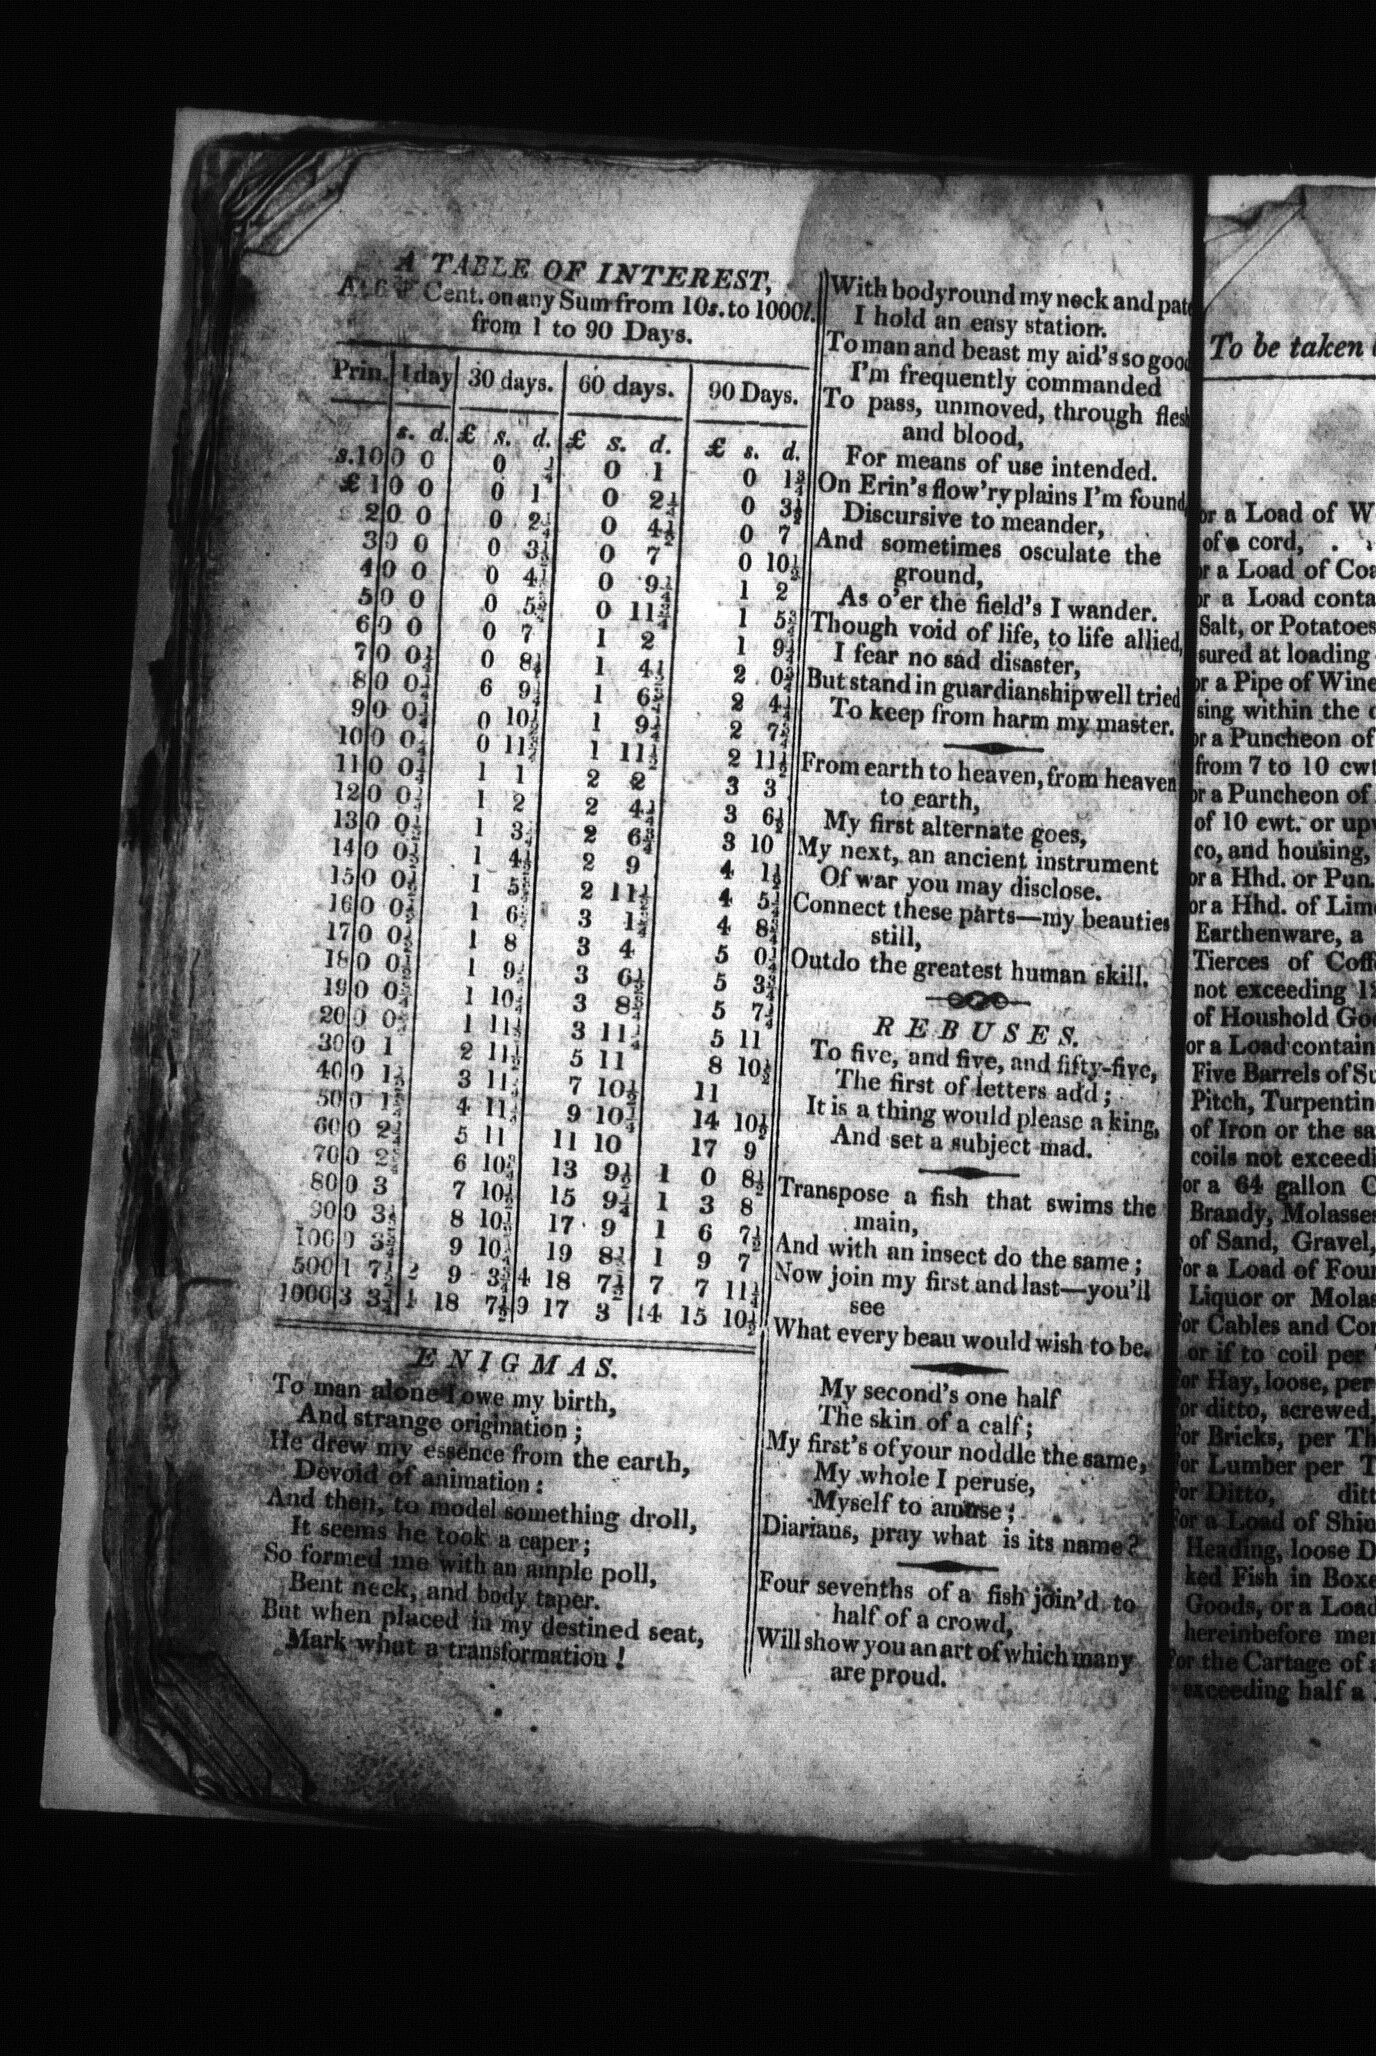 A TABLE OF INTEREST,
At 6 Cent. on any Sum from 10s. to 1000l.
from 1 to 90 Days.
Prin. 1 day 30 days. 60 days. 90 Days.
s. d. £ s. d. £ s. d. £ s. d.
s.10 0 0 0 ¼ 0 1 0 1¾
£ 1 0 0 0 1 0 2¼ 0 3½
2 0 0 0 2¼ 0 4½ 0 7
3 0 0 0 3½ 0 7 0 10½
4 0 0 0 4½ 0 9¼ 1 2
5 0 0 0 5¾ 0 11¾ 1 5¾
6 0 0 0 7 1 2 1 9¼
7 0 0¼ 0 8¼ 1 4½ 2 0¾
8 0 0¼ 6 9¼ 1 6¾ 2 4¼
9 0 0¼ 0 10½ 1 9¼ 2 7¾
10 0 0¼ 0 11¾ 1 11½ 2 11½
11 0 0¼ 1 1 2 2 3 3
12 0 0¼ 1 2 2 4¼ 3 6½
13 0 0½ 1 3¼ 2 6¾ 3 10
14 0 0½ 1 4½ 2 9 4 1½
15 0 0½ 1 5¾ 2 11½ 4 5¼
16 0 0½ 1 6¾ 3 1¾ 4 8¾
17 0 0½ 1 8 3 4 5 0¼
18 0 0½ 1 9¼ 3 6½ 5 3¾
19 0 0¾ 1 10¼ 3 8¾ 5 7¼
20 0 0¾ 1 11½ 3 11¼ 5 11
30 0 1 2 11½ 5 11 8 10½
40 0 1½ 3 11¼ 7 10½ 11
50 0 1¾ 4 11¼ 9 10¼ 14 10½
60 0 2¼ 5 11 11 10 17 9
70 0 2¾ 6 10¾ 13 9½ 1 0 8½
80 0 3 7 10½ 15 9¼ 1 3 8
90 0 3½ 8 10½ 17 9 1 6 7½
100 0 3¾ 9 10¼ 19 8½ 1 9 7
500 1 7½ 2 9 3¾ 4 18 7½ 7 7 11¼
1000 3 3¼ 4 18 7½ 9 17 3 14 15 10½
ENIGMAS.
To man alone I owe my birth,
And strange origination;
He drew my essence from the earth,
Devoid of animation:
And then, to model something droll,
It seems he took a caper;
So formed me with an ample poll,
Bent neck, and body taper.
But when placed in my destined seat,
Mark what a transformation!
With body round my neck and pate
I hold an easy station.
To man and beast my aid's so good
I'm frequently commanded
To pass, unmoved, through flesh
and blood,
For means of use intended.
On Erin's flow'ry plains I'm found
Discursive to meander,
And sometimes osculate the
ground,
As o'er the field's I wander.
Though void of life, to life allied,
I fear no sad disaster,
But stand in guardianship well tried
To keep from harm my master.
From earth to heaven, from heaven
to earth,
My first alternate goes,
My next, an ancient instrument
Of war you may disclose.
Connect these parts—my beauties
still,
Outdo the greatest human skill.
REBUSES.
To five, and five, and fifty-five,
The first of letters add;
It is a thing would please a king,
And set a subject mad.
Transpose a fish that swims the
main,
And with an insect do the same;
Now join my first and last—you'll
see
What every beau would wish to be.
My second's one half
The skin of a calf;
My first's of your noddle the same,
My whole I peruse,
Myself to amuse;
Diarians, pray what is its name?
Four sevenths of a fish join'd to
half of a crowd,
Will show you an art of which many
are proud.
To be taken
or a Load of W
of a cord,
or a Load of Coa
or a Load conta
Salt, or Potatoes
sured at loading
or a Pipe of Wine
sing within the c
or a Puncheon of
from 7 to 10 cwt
or a Puncheon of
of 10 cwt. or upw
co, and housing,
or a Hhd. or Pun.
or a Hhd. of Lime
Earthenware, a
Tierces of Coff
not exceeding 12
of Houshold Goo
or a Load contain
Five Barrels of Su
Pitch, Turpentin
of Iron or the sa
coils not exceedi
or a 64 gallon C
Brandy, Molasses
of Sand, Gravel,
For a Load of Four
Liquor or Molas
For Cables and Cor
or if to coil per
For Hay, loose, per
For ditto, screwed,
For Bricks, per Th
For Lumber per T
For Ditto, ditt
For a Load of Shin
Heading, loose D
ked Fish in Boxe
Goods, or a Load
hereinbefore men
For the Cartage of a
exceeding half a